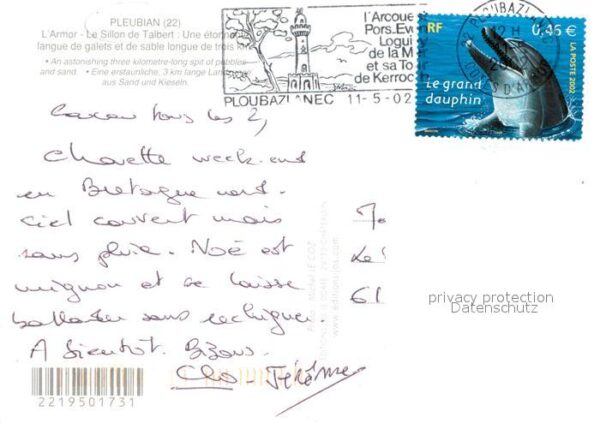 PLEUBIAN (22)
L'Armor - Le Sillon de Talbert : Une étonn
langue de galets et de sable longue de trois kil
• An astonishing three kilometre-long spit of pebbles
and sand. • Eine erstaunliche, 3 km lange Lan
aus Sand und Kieseln.
l'Arcoue
Pors.Eve
Logui
de la M
et sa To
de Kerroc'h
PLOUBAZLANEC 11-5-02
22 PLOUBAZLANEC
COTES D'ARMOR
RF 0,46 €
LA POSTE 2002
Le grand
dauphin
Coucou tous les 2,
Chouette week-end
en Bretagne nord.
Ciel couvert mais
sans pluie. Noé est
mignon et se laisse
ballader sans rechigner.
A bientôt. Bizous.
Clo - Jérôme
61
privacy protection
Datenschutz
2219501731